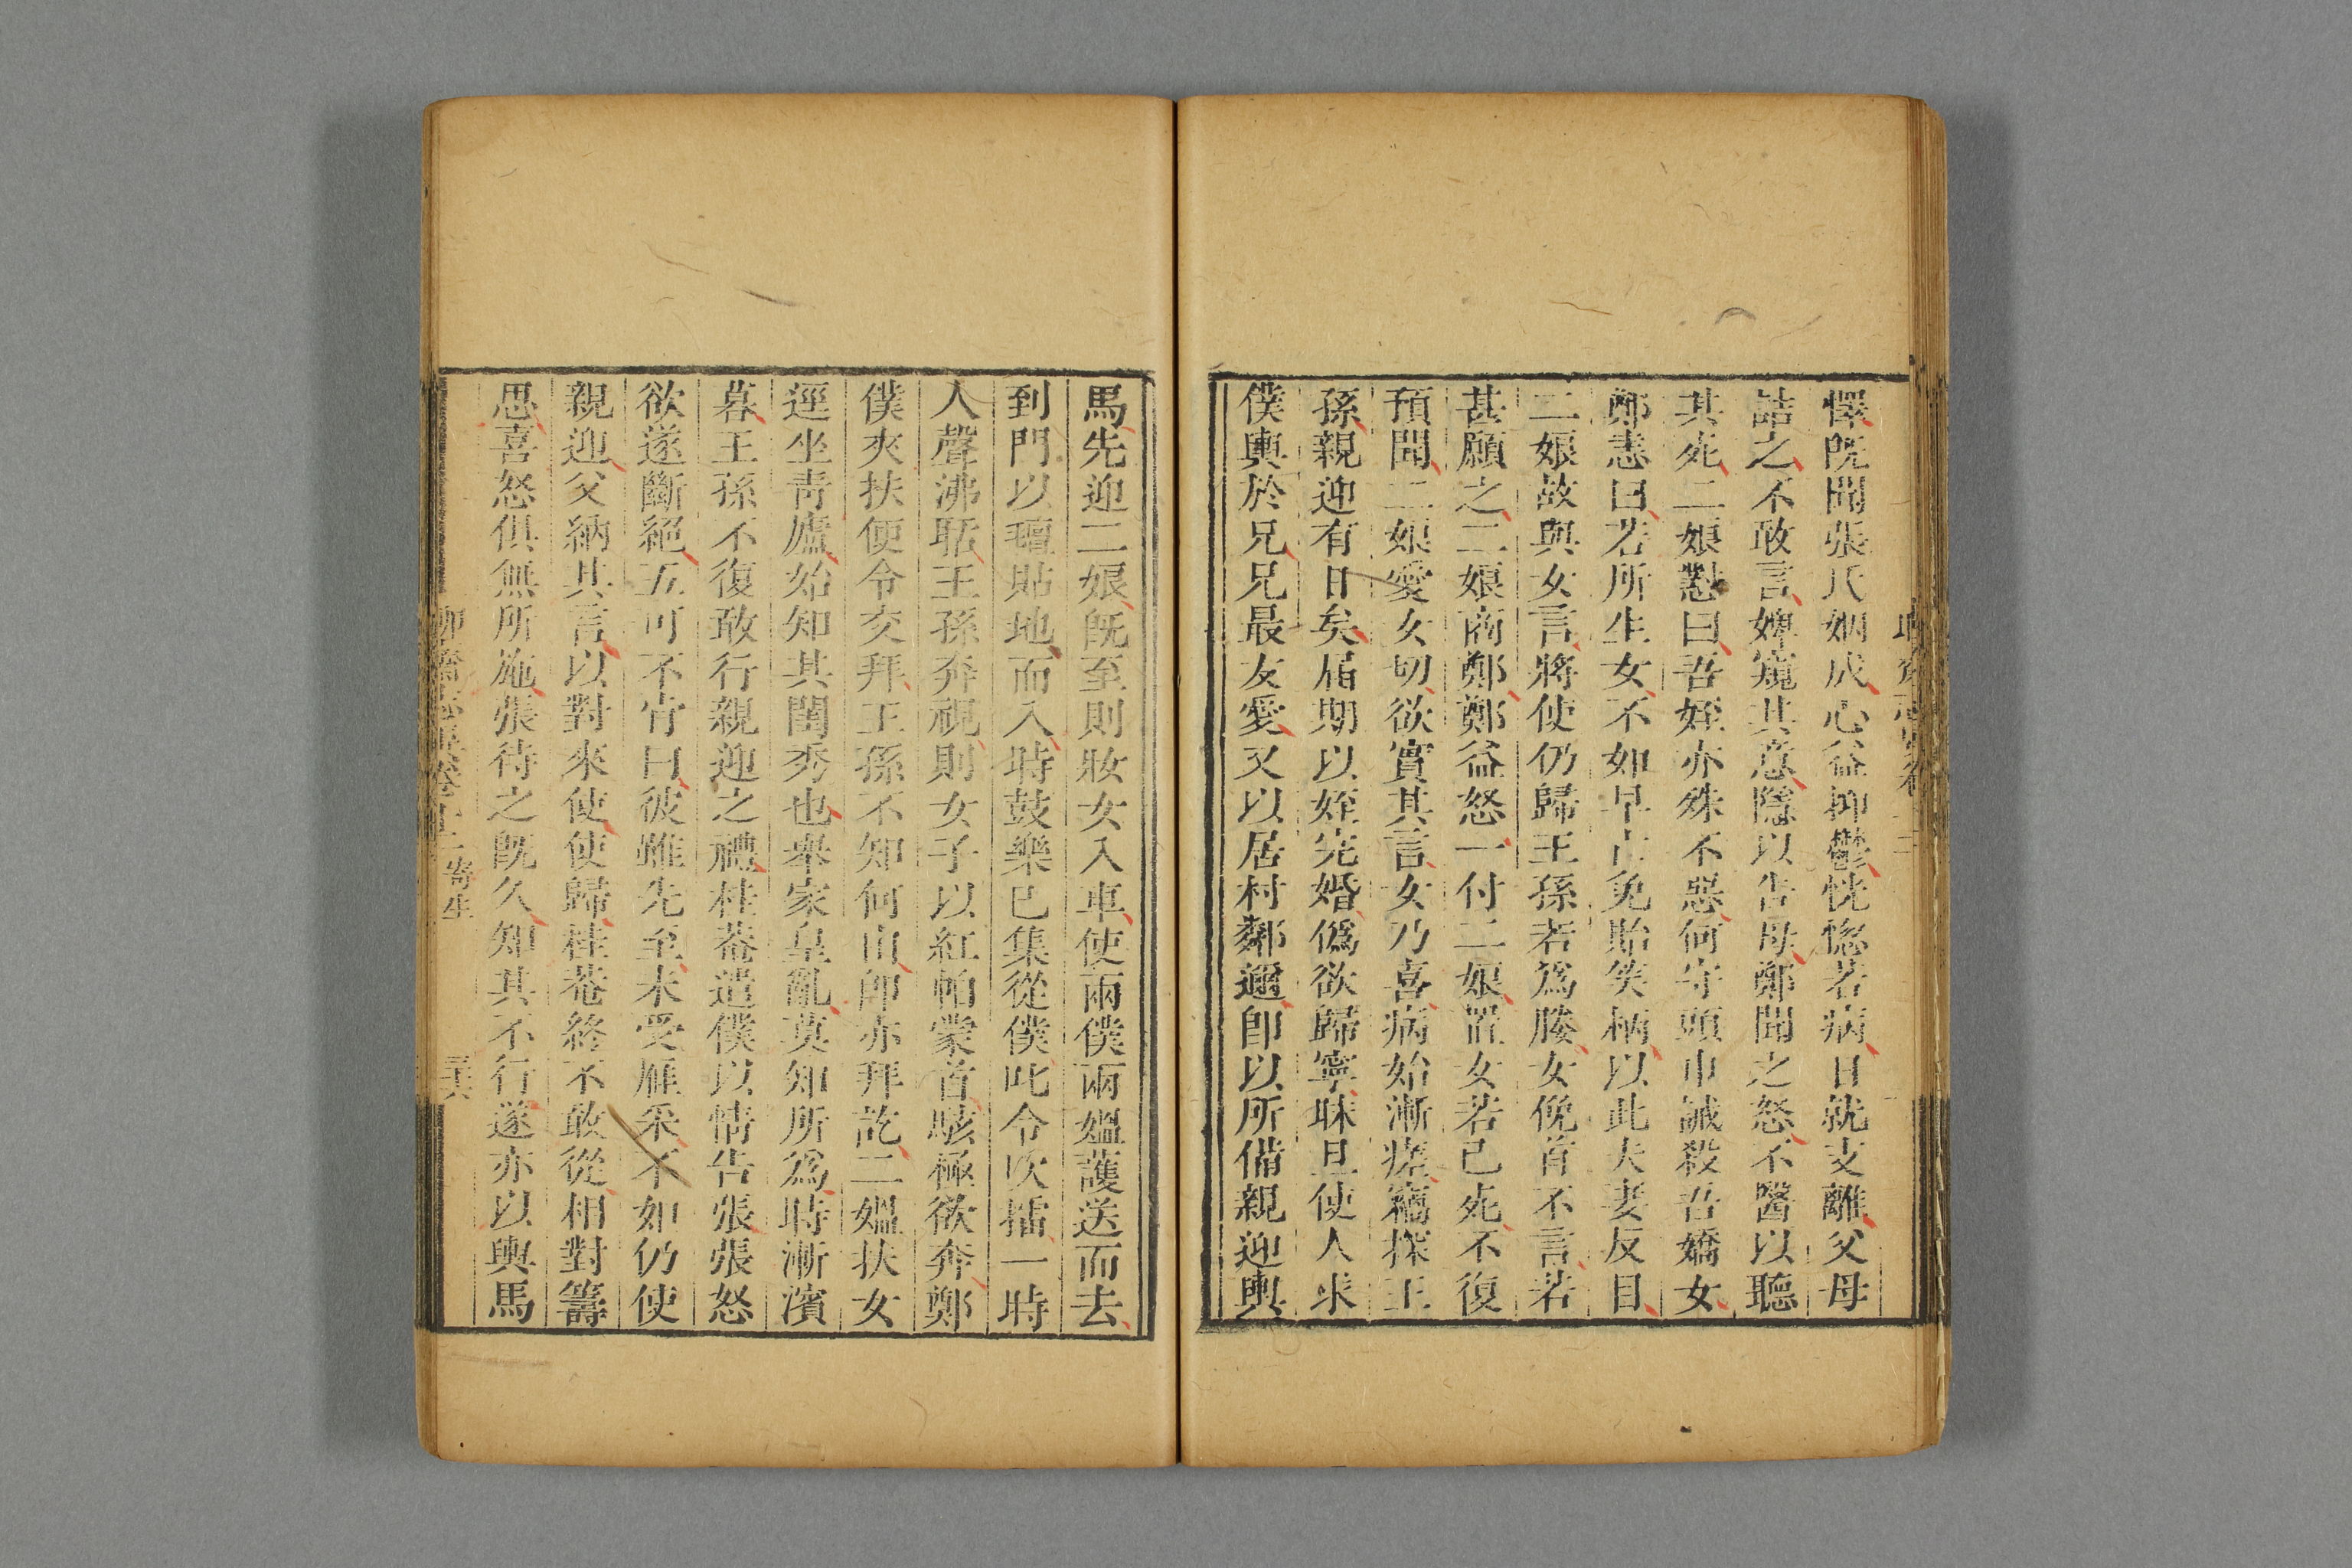 懌既聞張氏姻成心益抑鬱恍惚若病日就支離父母
詰之不敢言婢窺其意隱以告母鄭聞之怒不醫以聽
其死二娘懟曰吾姪亦殊不惡何守頭巾誡殺吾嬌女
鄭恚曰若所生女不如早亡免貽笑柄以此夫妻反目
二娘故與女言將使仍歸王孫若為媵女俛首不言若
甚願之二娘商鄭鄭益怒一付二娘置女若已死不復
預聞二娘愛女切欲實其言女乃喜病始漸瘥竊探王
孫親迎有日矣屆期以姪完婚偽欲歸寧昧旦使人求
僕輿於兄兄最友愛又以居村鄰邇即以所備親迎輿
馬先迎二娘既至則妝女入車使兩僕兩媼護送而去
到門以氊貼地而入時鼓樂已集從僕叱令吹擂一時
人聲沸聒王孫奔視則女子以紅帕蒙首駭極欲奔鄭
僕夾扶便令交拜王孫不知何由即亦拜訖二媼扶女
逕坐青廬始知其閨秀也舉家皇亂莫知所為時漸濱
暮王孫不復敢行親迎之禮桂菴遣僕以情告張張怒
欲遂斷絕五可不肯曰彼雖先至未受雁采不如仍使
親迎父納其言以對來使使歸桂菴終不敢從相對籌
思喜怒俱無所施張待之既久知其不行遂亦以輿馬
寄生